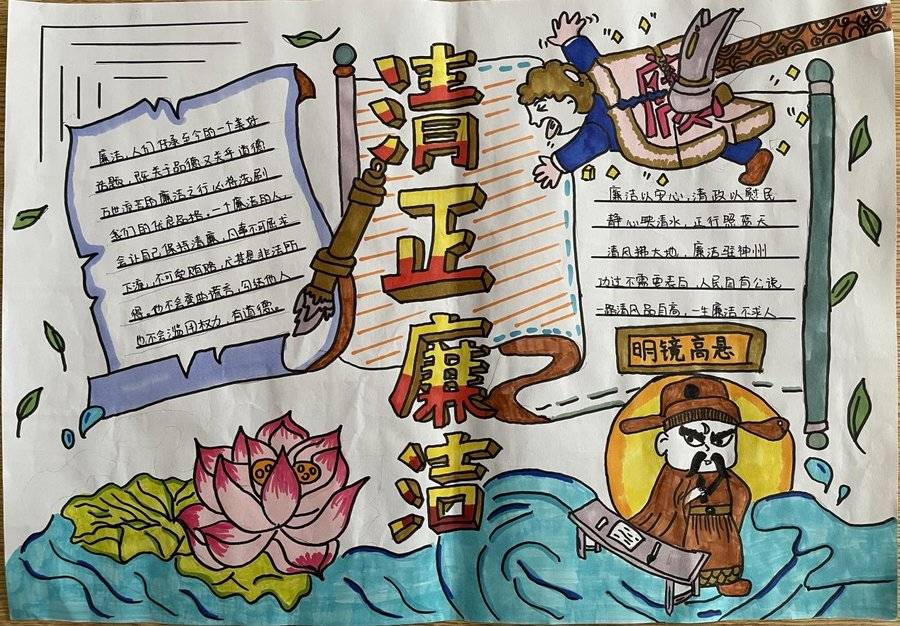 清正廉洁
廉洁,人们传承至今的一个美好
话题,既关于品德又关乎道德
万世流芳的廉洁之行必将洗刷
我们的优良品格,一个廉洁的人,
会让自己保持清廉,凡事不可
下流,不可受贿赂,尤其是非法所
得。也不会弯曲谎言,勾结他人
也不会滥用权力,有道德。
廉洁以安心,清政以慰民
静心映清水,正行照蓝天
清风拂大地,廉洁驻神州
功过不需更表白,人民自有公论
清风品自高,一生廉洁不求人
明镜高悬